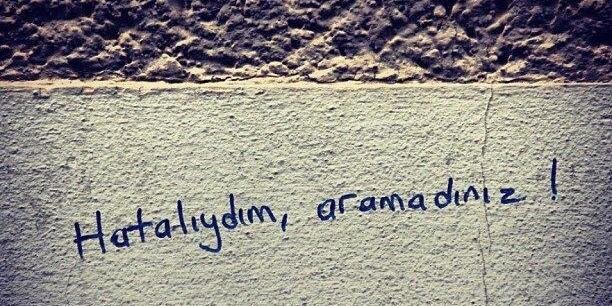 Hatalıydım, aramadınız !